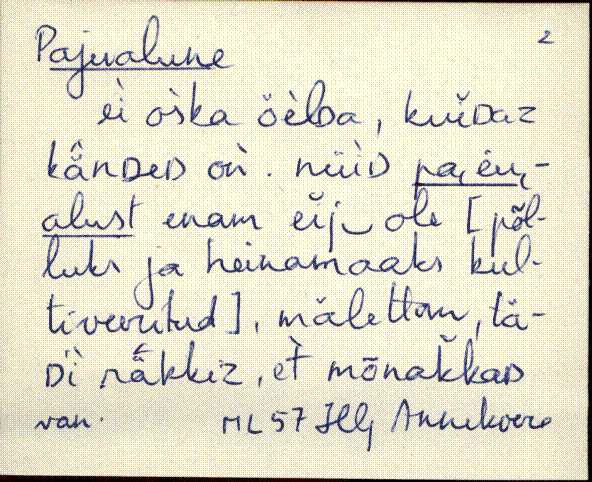 Pajualune 2
ei oska öelDa, kuiDaz
känDeD on. nüiD paiu-
alust enam eij ole [põl-
luks ja heinamaaks kul-
tiveeritud], mäletton, tä-
Di räkkiz, et mõnakkaD
van. ML 57 Annekvere